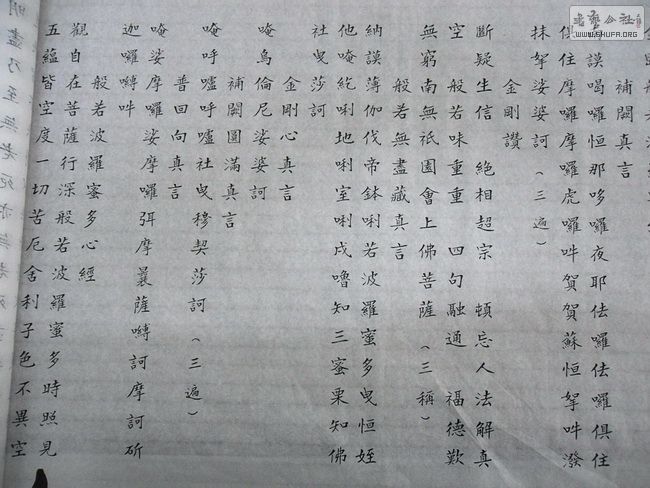 補闕真言
謨喝囉怛那哆囉夜耶佉囉佉囉俱住
俱住摩囉摩囉虎囉吽賀賀蘇怛拏吽潑
抹拏娑婆訶（三遍）
金剛讚
斷疑生信 絕相超宗 頓忘人法解真
空 般若味重重 四句融通 福德歎
無窮南無祇園會上佛菩薩（三稱）
般若無盡藏真言
納謨薄伽伐帝缽唎若波羅蜜多曳怛姪
他唵紇唎地唎室唎戍嚕知三蜜栗知佛
社曳莎訶
金剛心真言
唵烏倫尼娑婆訶
補闕圓滿真言
唵呼嚧呼嚧社曳穆契莎訶（三遍）
普回向真言
唵娑摩囉娑摩囉弭摩曩薩嚩訶摩訶斫
迦囉嚩吽
般若波羅蜜多心經
觀自在菩薩行深般若波羅蜜多時照見
五蘊皆空度一切苦厄舍利子色不異空
明盡乃至無老死亦無老死
書藝公社
WWW.SHUFA.ORG